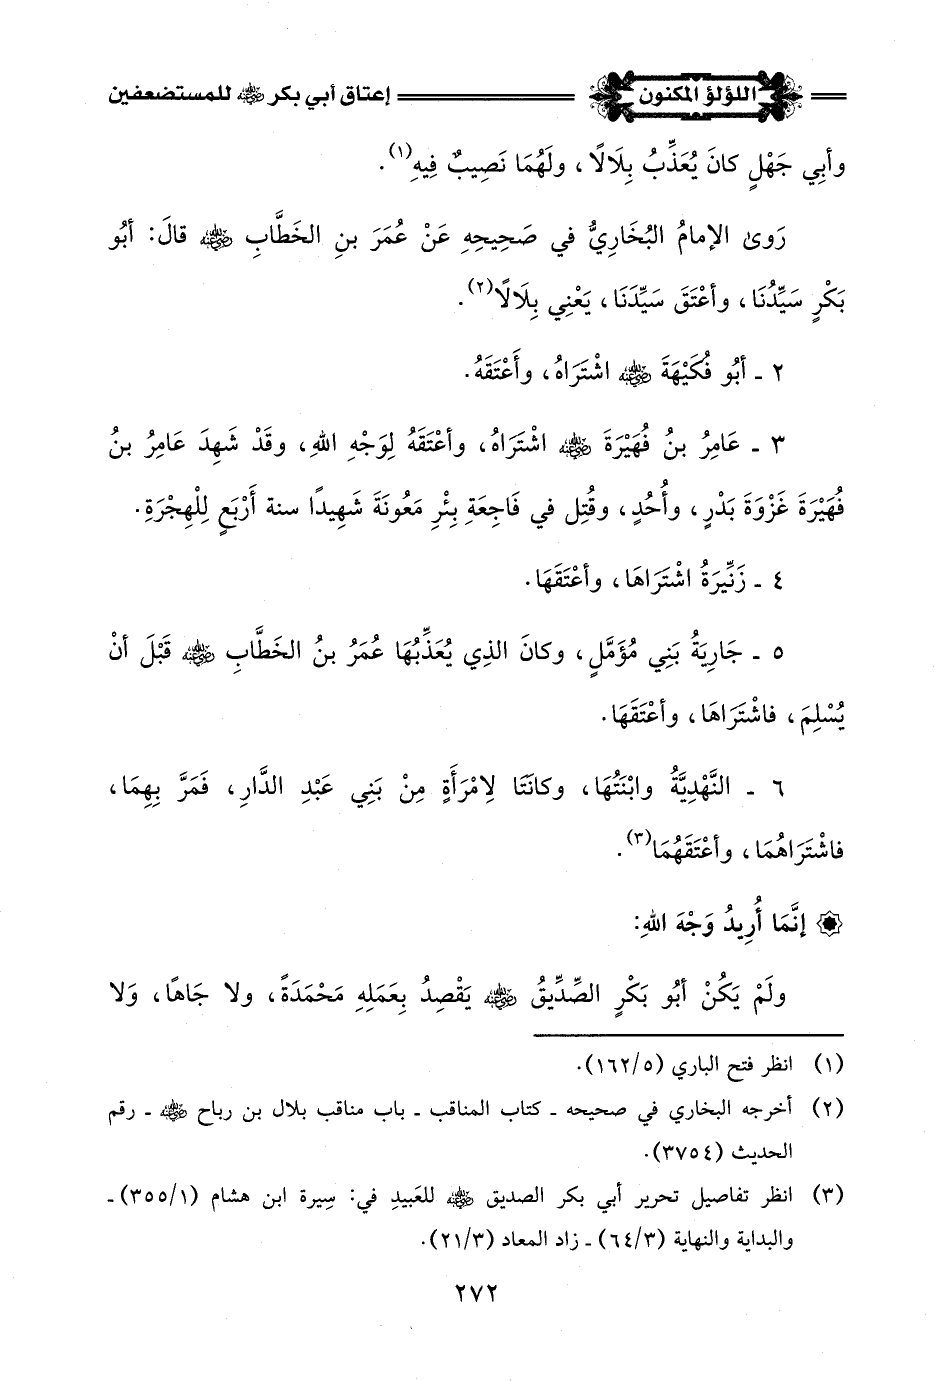 اللؤلؤ المكنون إعتاق أبي بكر ﵁ للمستضعفين
وأبِي جَهْلٍ كانَ يُعَذِّبُ بِلَالًا، ولَهُمَا نَصِيبٌ فِيهِ(١).
رَوىٰ الإمامُ البُخَارِيُّ في صَحِيحِهِ عَنْ عُمَرَ بنِ الخَطَّابِ ﵁ قالَ: أبُو
بَكْرٍ سَيِّدُنَا، وأعْتَقَ سَيِّدَنَا، يَعْنِي بِلَالًا(٢).
٢ ـ أبُو فُكَيْهَةَ ﵁ اشْتَرَاهُ، وأَعْتَقَهُ.
٣ ـ عَامِرُ بنُ فُهَيْرَةَ ﵁ اشْتَرَاهُ، وأعْتَقَهُ لِوَجْهِ اللهِ، وقَدْ شَهِدَ عَامِرُ بنُ
فُهَيْرَةَ غَزْوَةَ بَدْرٍ، وأُحُدٍ، وقُتِل في فَاجِعَةِ بِئْرِ مَعُونَةَ شَهِيدًا سنة أَرْبَعٍ لِلْهِجْرَةِ.
٤ ـ زَنِّيرَةُ اشْتَرَاهَا، وأعْتَقَهَا.
٥ ـ جَارِيَةُ بَنِي مُؤَمَّلٍ، وكانَ الذِي يُعَذِّبُهَا عُمَرُ بنُ الخَطَّابِ ﵁ قَبْلَ أنْ
يُسْلِمَ، فاشْتَرَاهَا، وأعْتَقَهَا.
٦ ـ النَّهْدِيَّةُ وابْنَتُهَا، وكانَتَا لِامْرَأَةٍ مِنْ بَنِي عَبْدِ الدَّارِ، فَمَرَّ بِهِمَا،
فاشْتَرَاهُمَا، وأعْتَقَهُمَا(٣).
إنَّمَا أُرِيدُ وَجْهَ اللهِ:
ولَمْ يَكُنْ أبُو بَكْرٍ الصِّدِّيقُ ﵁ يَقْصِدُ بِعَمَلِهِ مَحْمَدَةً، ولا جَاهًا، وَلا
(١) انظر فتح الباري (٥/١٦٢).
(٢) أخرجه البخاري في صحيحه ـ كتاب المناقب ـ باب مناقب بلال بن رباح ﵁ ـ رقم
الحديث (٣٧٥٤).
(٣) انظر تفاصيل تحرير أبي بكر الصديق ﵁ للعَبيدِ في: سِيرة ابن هشام (١/٣٥٥) ـ
والبداية والنهاية (٣/٦٤) ـ زاد المعاد (٣/٢١).
٢٧٢